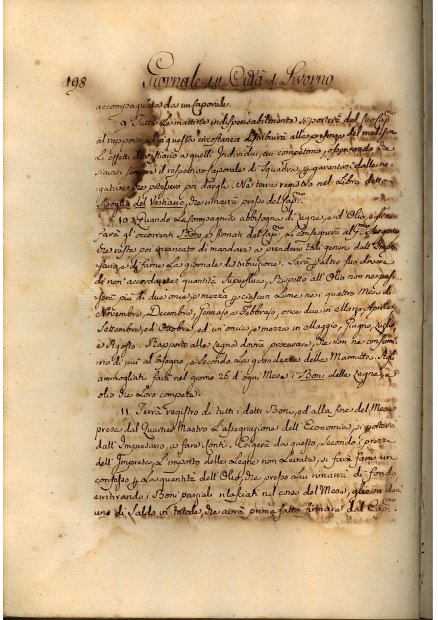 198 Giornale della Città di Livorno
accompagnata da un Caporale.
9. Tutte le mattine indispensabilmente si porterà dal suo Cap.no
al rapporto, ed in questa circostanza distribuirà alla presenza del medesimo
gli effetti di vestiario a quelli Individui, cui competono,
il respettivo Caporale di Squadra,
Ne terrà registro nel Libro detto
Spoglio del Vestiario, che rimarrà presso del Cap.no
10. Quando la Compagnia abbisogna di legne, e d'Olio, si
farà gl'occorrenti Boni a firmar del Cap.no, e li consegnerà al Sargente
che resta poi incaricato di mandare a prendere tali generi dall'Impre-
sario, e di farne la giornale distribuzione. Sarà altro suo dovere
di non accordarne quantità superflue, rispetto all'Olio non ne pas-
serà più di due once e mezza per ciascun Lume ne i quattro Mesi di
Novembre, Decembre, Gennajo e Febbrajo, once due in Marzo, Aprile,
Settembre, ed Ottobre, ed un'oncia e mezza in Maggio, Giugno, Luglio,
e Agosto. Rapporto alle legne dovrà procurare, che non ne consumi-
no di più al bisogno, e secondo la grandezza delle Marmitte. Agl'
ammogliati farà nel giorno 26 d'ogni Mese i Boni delle legne, e
olio che loro compete.
11. Terrà registro di tutti i detti Boni, ed alla fine del Mese
presa dal Quartier Mastro l'assegnazione dell'Economia, si porterà
dall'Impresario, a fare i conti. Esigerà da questo, secondo i prezzi
dell'Impresa, l'importo delle Legne non levate, si farà fare un
confesso per la quantità dell'Olio, che presso lui rimarrà di fondo
e ritirando i Boni parziali rilasciati nel corso del Mese, gliene darà
uno di Saldo in totale, che avrà prima fatto firmare dal Cap.no